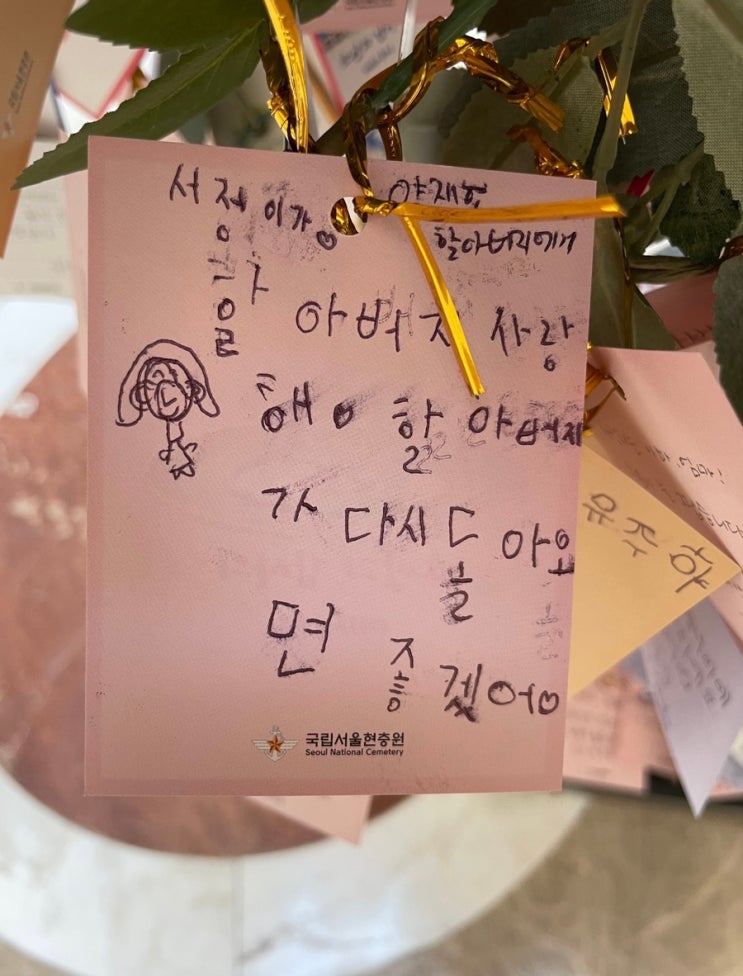 서정이가
할아버지에게
할아버지 사랑
해요 할아버지
가 다시 돌아오
면 좋겠어요
국립서울현충원
Seoul National Cemetery
엄마!
유주하